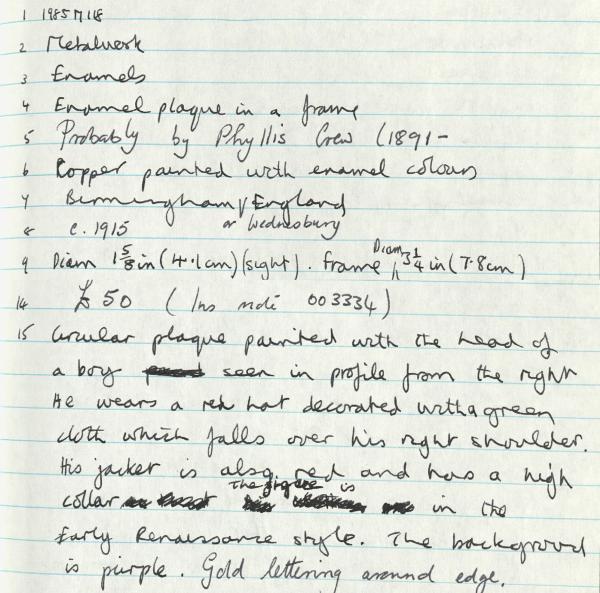 1 1985M118
2 Metalwork
3 Enamels
4 Enamel plaque in a frame
5 Probably by Phyllis Crew (1891-
6 Copper painted with enamel colours
7 Birmingham, England
or Wednesbury
8 c. 1915
9 Diam 1 5/8 in (4.1cm) (sight). Frame Diam 3 1/4 in (7.8cm)
14 £50 (Ins 003334)
15 Circular plaque painted with the head of
a boy seen in profile from the right
He wears a red hat decorated with a green
cloth which falls over his right shoulder.
His jacket is also red and has a high
collar the figure is in the
Early Renaissance style. The background
is purple. Gold lettering around edge.